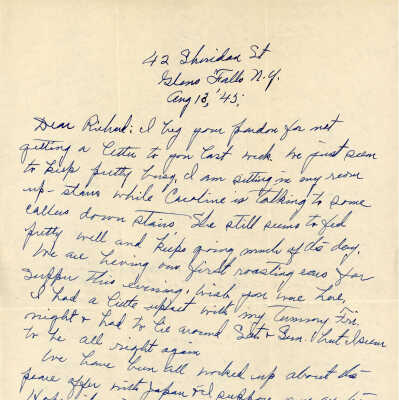 42 Sheridan St
Glens Falls N.Y.
Aug 13, '45,
Dear Richard: I beg your pardon for not
getting a letter to you last week we just seem
to keep pretty busy, I am sitting in my room
up-stairs while Caroline is talking to some
callers down stairs. She still seems to feel
pretty well and keeps going much of the day.
We are having our first roasting ears for
supper this evening, wish you were here,
I had a little upset with my Tummy Fri.
night & had to lie around Sat & Sun. but I seem
to be all right again
We have been all worked up about the
peace offer with Japan & I suppose